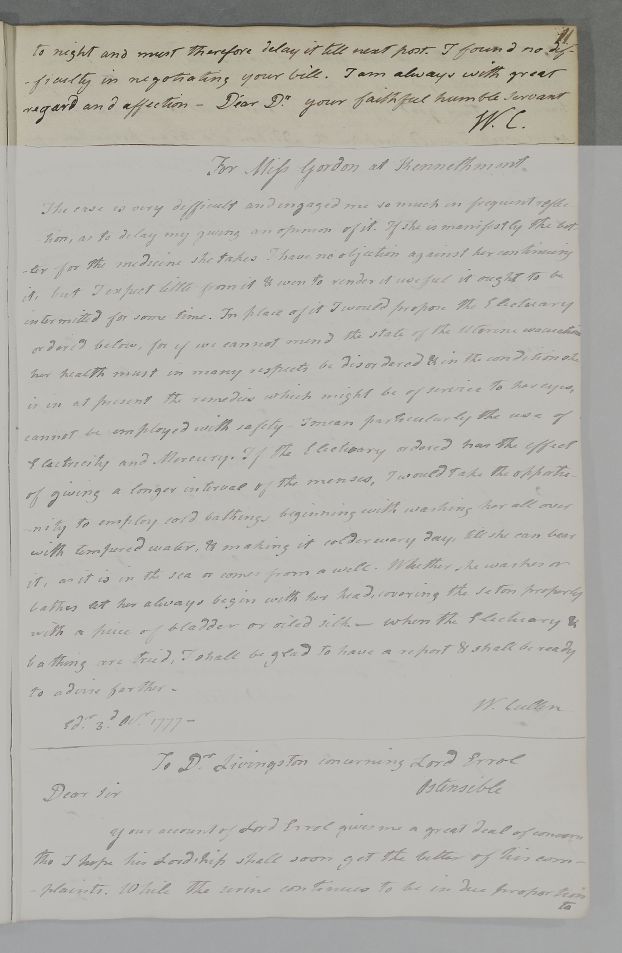 11
to night and must therefore delay it till next post. I found no dif-
-ficulty in negotiating your bill. I am always with great
regard and affection - Dear Dr. your faithful humble Servant
W. C.
For Miss Gordon at Kennethmont.
The case is very difficult and engaged me so much in frequent refle-
-tion, as to delay my giving an opinion of it. If she is manifestly the bet-
-ter for the medicine she takes I have no objection against her continuing
it, but I expect little from it & even to render it useful it ought to be
intermitted for some time. In place of it I would propose the Electuary
ordered below, for if we cannot mend the state of the Uterine evacuation
her health must in many respects be disordered & in the condition she
is in at present the remedies which might be of service to her eyes,
cannot be employed with safety - I mean particularly the use of
Electricity and Mercury. If the Electuary ordered has the effect
of giving a longer interval of the menses, I would take the opportu-
-nity to employ cold bathing, beginning with washing her all over
with tempered water, & making it colder every day, till she can bear
it, as it is in the sea or comes from a well. Whether she washes or
bathes let her always begin with her head, covering the seton properly
with a piece of bladder or oiled silk - when the Electuary &
bathing are tried, I shall be glad to have a report & shall be ready
to advise farther -
W. Cullen
Edr. 3d 1777 -
To Dr. Livingston concerning Lord Errol
Ostensible
Dear Sir
Your account of Lord Errol gives me a great deal of concern
tho I hope his Lordship shall soon get the better of his com-
-plaints. While the urine continues to be in due proportion
to